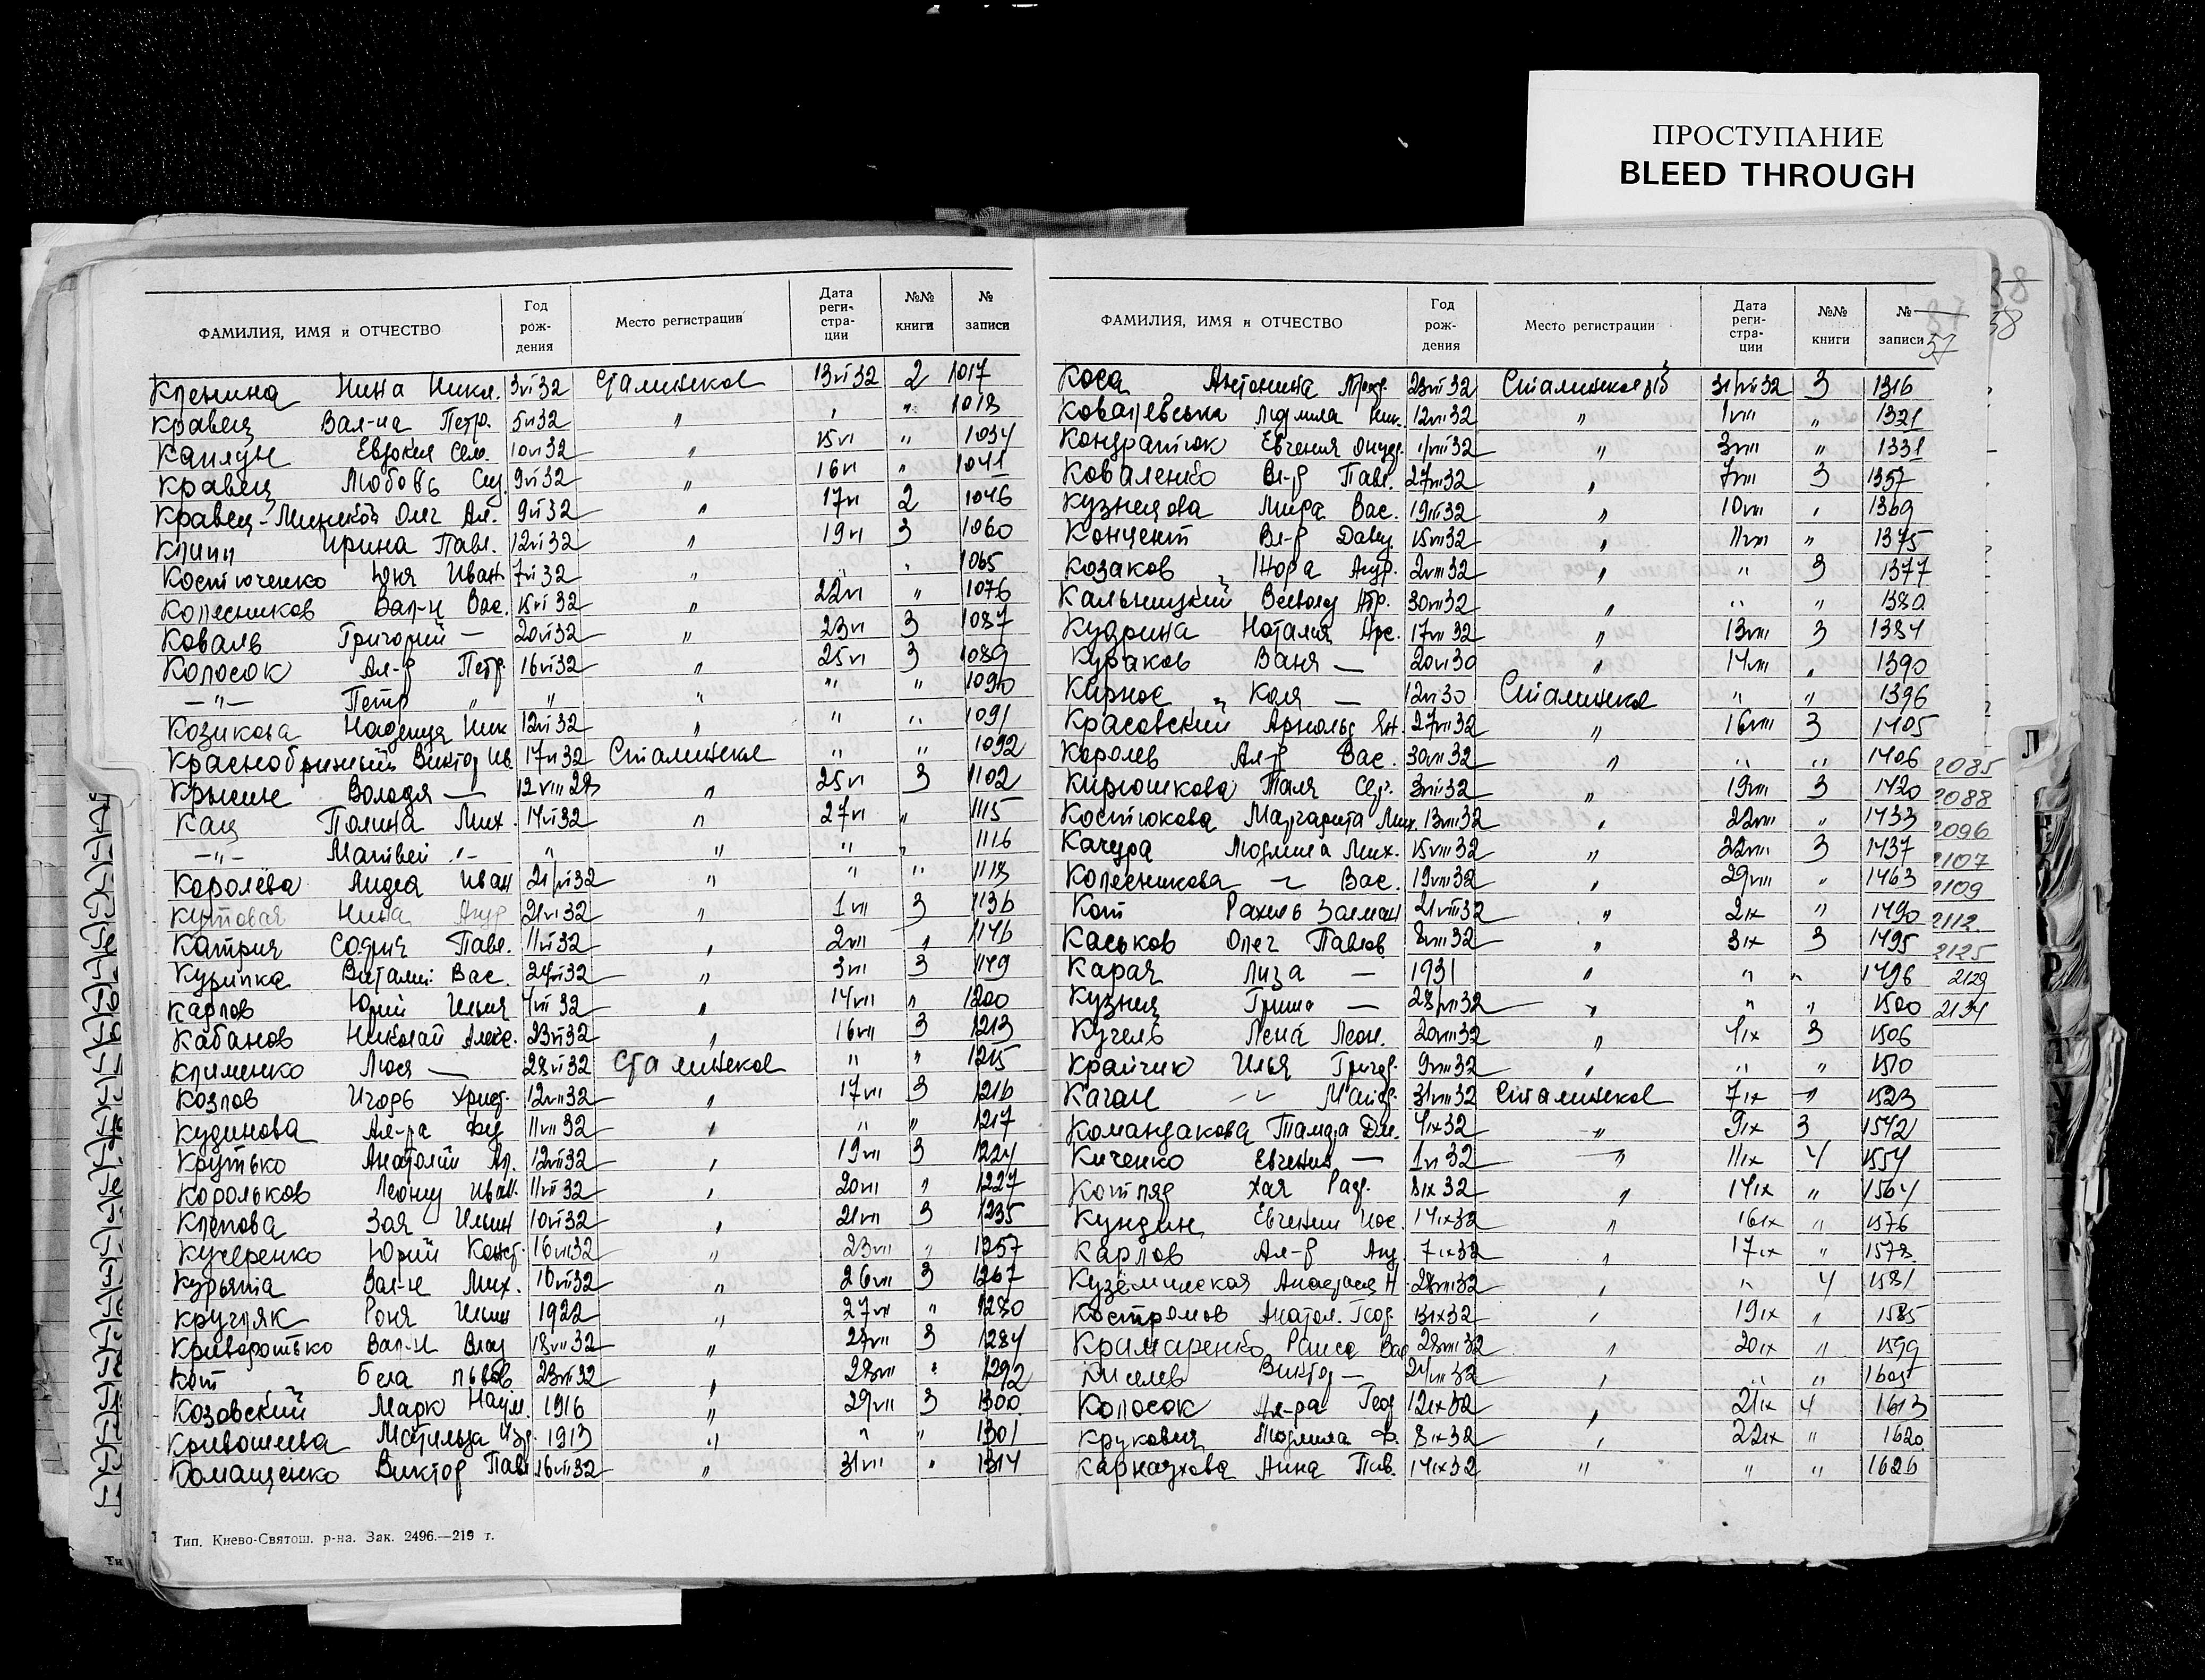 ПРОСТУПАНИЕ
BLEED THROUGH
ФАМИЛИЯ, ИМЯ и ОТЧЕСТВО Год рож- дения Место регистрации Дата реги- стра- ции №№ книги № записи
Кленина Нина Никл. 3 VI 32 Сталинское 13 VI 32 2 1017
Кравец Вал-на Петр. 5 VI 32 " " " 1018
Каплун Евдокия Сем. 10 VI 32 " 15 VI " 1034
Кравец Любовь 9 VI 32 " 16 VI " 1041
Кравец-Минский Олег Ал. 9 VI 32 " 17 VI 2 1046
Клипп Ирина Павл. 12 VI 32 " 19 VI 3 1060
Костюченко Юля Иван 7 VI 32 " " " 1065
Колесников Вал-н Вас. 15 VI 32 " 22 VI " 1076
Коваль Григорий — 20 VI 32 " 23 VI 3 1087
Колосок Ал-р Петр. 16 VI 32 " 25 VI 3 1089
—"— Петр " " " " " 1090
Козикова Надежда Ник 12 VI 32 " " " 1091
Виктор Ив. 17 VI 32 Сталинское " " 1092
Володя — 12 VIII 28 " 25 VI 3 1102
Кац Полина Мих. 14 VI 32 " 27 VI " 1115
—"— Матвей —"— " " " " 1116
Королёва Лидия Иван 21 VI 32 " " " 1118
Кутовая Нина Анд 21 VI 32 " 1 VII 3 1136
Катрич София Павл. 11 VI 32 " 2 VII " 1146
Курипка Виталий Вас. 24 VI 32 " 3 VII 3 1149
Карпов Юрий Ильич 4 VII 32 " 14 VII " 1200
Кабанов Николай Алекс. 23 VI 32 " 16 VII 3 1213
Клименко Люся — 28 VI 32 Сталинское " " 1215
Козлов Игорь Христ. 12 VII 32 " 17 VII 3 1216
Кудинова Ал-ра 11 VII 32 " " " 1217
Крутько Анатолий Ал. 12 VII 32 " 19 VII 3 1224
Корольков Леонид Иван. 11 VII 32 " 20 VII " 1227
Клепова Зоя Ильин 10 VII 32 " 21 VII 3 1235
Кучеренко Юрий Конст. 16 VII 32 " 23 VII " 1257
Курьята Вал-н Мих. 10 VII 32 " 26 VII 3 1267
Кругляк Роня Ильин 1922 " 27 VII " 1280
Криворотько Вал-н Влад 18 VII 32 " 27 VII 3 1284
Кот Бела Львов 23 VII 32 " 28 VII " 1292
Козовский Марк Наум. 1916 " 29 VII 3 1300
Кривошеева Матильда 1913 " " " 1301
Домащенко Виктор Павл 16 VII 32 " 31 VII " 1314
Тип. Киево-Святош. р-на. Зак. 2496.—219 г.
ФАМИЛИЯ, ИМЯ и ОТЧЕСТВО Год рож- дения Место регистрации Дата реги- стра- ции №№ книги № записи 57
Коса Антонина 23 VII 32 31 VII 32 3 1316
Ковалевська Людмила Ник. 12 VII 32 " 1 VIII " 1321
Кондратюк Евгения 1 VIII 32 " 3 VIII " 1331
Коваленко Вл-р Павл. 27 VII 32 " 7 VIII 3 1357
Кузнецова Мира Вас. 19 VII 32 " 10 VIII " 1369
Концент Вл-р Давид. 15 VII 32 " 11 VIII " 1375
Козаков Нора Андр. 2 VIII 32 " " 3 1377
Кальницкий Всеволод Абр. 30 VII 32 " " " 1380
Кудрина Наталия Арс. 17 VII 32 " 13 VIII 3 1384
Кураков Ваня — 20 VI 30 " 14 VIII " 1390
Кирнос Коля — 12 VI 30 Сталинское " " 1396
Красовский Арнольд Ян. 27 VII 32 " 16 VIII 3 1405
Королев Ал-р Вас. 30 VII 32 " " " 1406
Кирюшкова Таля Сер. 3 VIII 32 " 19 VIII 3 1420
Костюкова Маргарита Мих. 13 VIII 32 " 22 VIII " 1433
Качура Людмила Мих. 15 VIII 32 " 22 VIII 3 1437
Колесникова —"— Вас. 19 VIII 32 " 29 VIII " 1463
Кот Рахиль Залман 21 VIII 32 " 2 IX " 1490
Каськов Олег Павлов 8 VIII 32 " 3 IX 3 1495
Карая Лиза — 1931 " " " 1496
Кузнец Гриша — 28 VII 32 " " " 1500
Кучель Лена Леон. 20 VIII 32 " 4 IX 3 1506
Крайчик Илья Григ. 9 VIII 32 " " " 1510
Каган —"— 31 VIII 32 Сталинское 7 IX " 1523
Командакова Тамара Дм. 4 IX 32 " 9 IX 3 1542
Киченко Евгения — 1 VI 32 " 11 IX 4 1554
Котляр Хая 8 IX 32 " 14 IX " 1564
Кундин Евгений Иос. 14 IX 32 " 16 IX " 1576
Карлов Ал-р Анд. 7 IX 32 " 17 IX " 1578
Куземинская Анастасия Н. 28 VIII 32 " " 4 1581
Костромов Анатол. Геор. 13 IX 32 " 19 IX " 1585
Крамаренко Раиса Вас 28 VIII 32 " 20 IX " 1599
Киселев Виктор — 24 VIII 32 " " " 1605
Колосок Ал-ра Геор 12 IX 32 " 21 IX 4 1613
Крукович Людмила Ф. 8 IX 32 " 22 IX " 1620
Карнаухова Анна Пав. 14 IX 32 " " " 1626
2085
2088
2096
2107
2109
2112
2125
2129
2134
Л